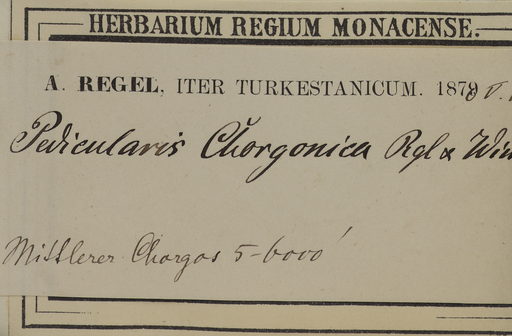 HERBARIUM REGIUM MONACENSE.
A. REGEL, ITER TURKESTANICUM. 1878 V.
Pedicularis Chorgonica Rgl & Win
Mittlerer Chorgos 5-6000'